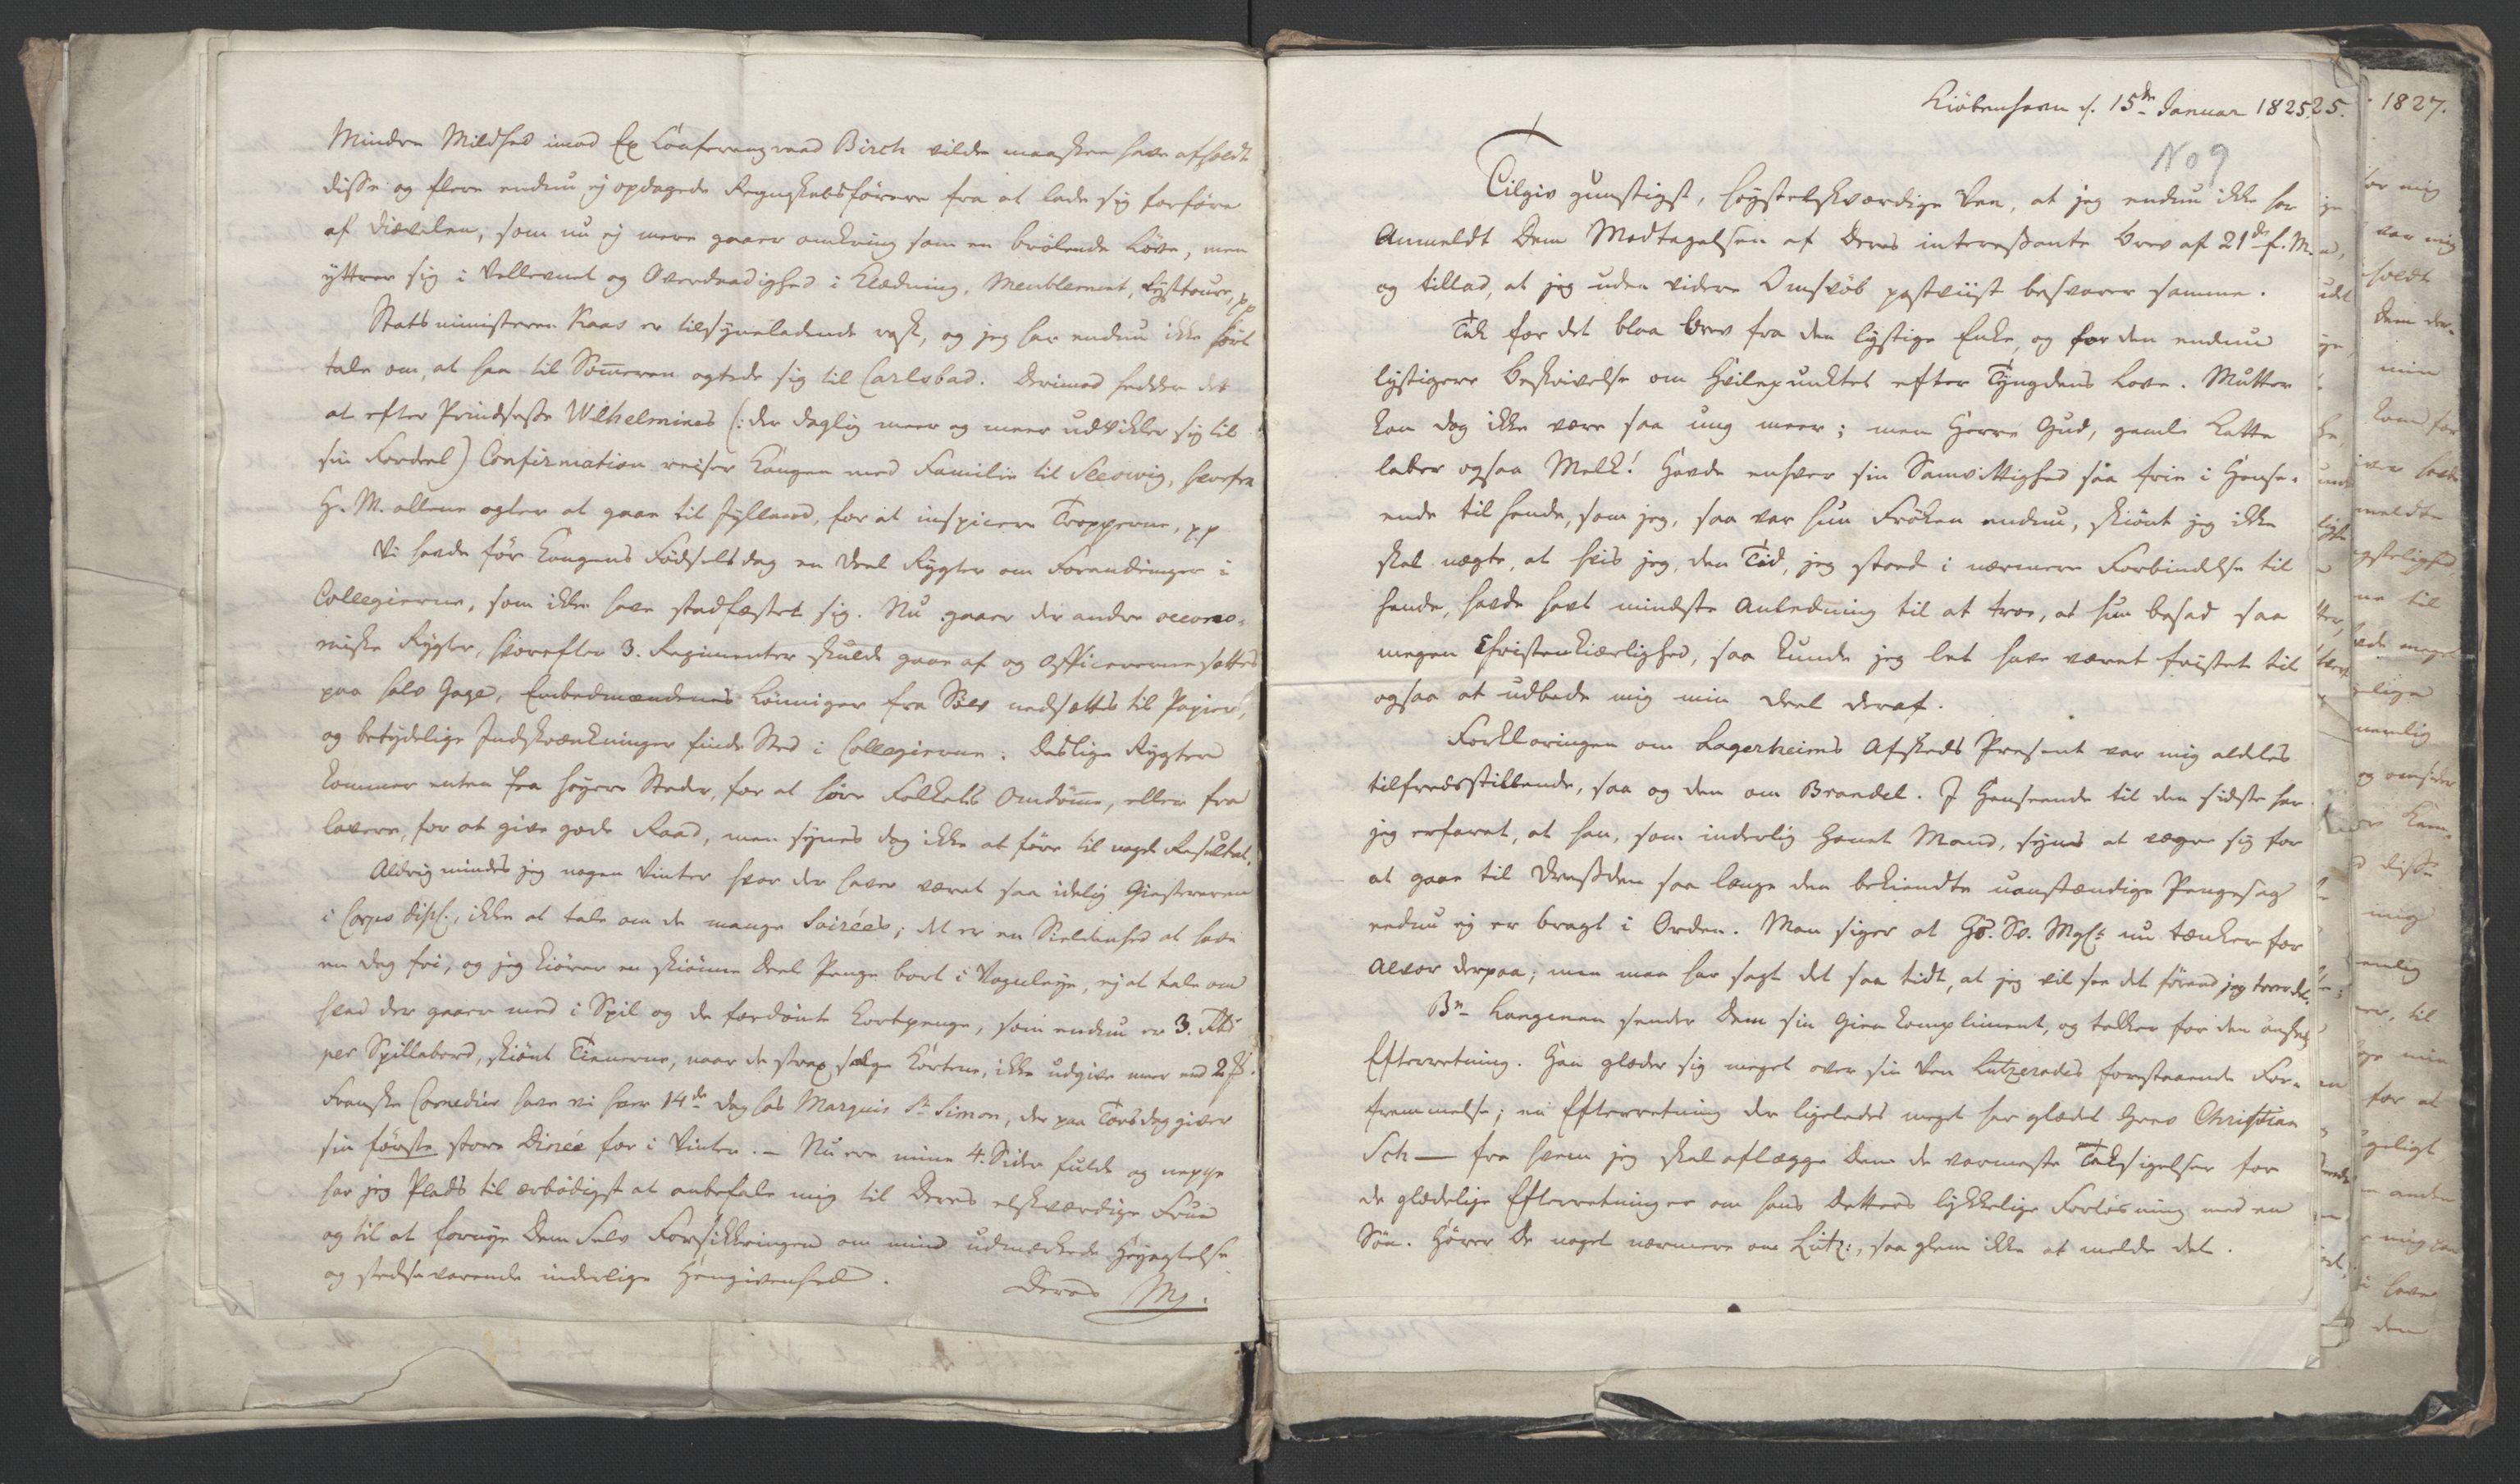 Mindre Mildhed imod Ex Conferenzraad Birch vilde maaskee have afholdt
disse og flere endnu ej opdagede Regnskabsförere fra at lade sig forföre
af Diævelen, som nu ej mere gaaer omkring som en brölende Löve, men
yttrer sig i Vellevnet og Overdaadighed i Klædning, Meublement, Lysttoure, pp
Statsministeren Kaas er tilsyneladende rask, og jeg har endnu ikke hört
tale om, at han til Som̅eren agtede sig til Carlsbad. Derimod hedder det
at efter Prindsesse Wilhelmines (: der daglig meer og meer udvikler sig til
sin Fordeel) Confirmation reiser Kongen med Familie til Slesvig, hvorfra
H. M. allene agter at gaae til Jylland, for at inspicere Tropperne, pp
Vi havde för Kongens Födselsdag en Deel Rygter om Forandringer i
Collegierne, som ikke have stadfæstet sig. Nu gaaer der andre oecono-
miske Rygter, hvorefter 3. Regimenter skulde gaae af og Officererne sættes
paa halv Gage, Embedmændenes Lönninger fra Sölv nedsættes til Papier,
og betydelige Indskrænkninger finde Sted i Collegierne. Deslige Rygter
kommer enten fra höyere Steder, for at höre Folkets Omdöm̅e, eller fra
lavere, for at give gode Raad, men synes dog ikke at före til noget Resultat.
Aldrig mindes jeg nogen Vinter hvor der haver været saa idelig Giesteren
i Corps dipl:, ikke at tale om de mange Soirées; det er en Sieldenhed at have
en Dag fri, og jeg kiörer en skiönne Deel Penge bort i Vognleye, ej at tale om
hvad der gaaer med i Spil og de fordömte Kortpenge, som endnu er 3. Rbd
per Spillebord, skiönt Tienerne, naar de strax sælge Kortene, ikke udgive meer end 2 ß.
Franske Comedier have vi hver 14de Dag hos Marquis St Simon, der paa Torsdag giver
sin förste store Dinée for i Vinter. – Nu ere mine 4. Sider fulde og neppe
har jeg Plads til ærbödigst at anbefale mig til Deres elskværdige Frue
og til at fornye Dem Selv Forsikkringen om min udmærkede Höyagtelse
og stedsevarende inderlige Hengivenhed.
Deres My.
Kiöbenhavn d. 15de Januar 1825.
No 9
Tilgiv gunstigst, höystelskværdige Ven, at jeg endnu ikke har
Anmeldt Dem Modtagelsen af Deres interessante Brev af 21de f. M.
og tillad, at jeg uden videre Omsvöb postviist besvarer samme.
Tak for det blaa Brev fra den lystige Enke, og for den endnu
lystigere Beskrivelse om Hvilepunktet efter Tyngdens Love. Mutter
kan dog ikke være saa ung meer; men Herre Gud, gamle Katte
laber ogsaa Melk! Havde enhver sin Samvittighed saa frie i Hense-
ende til hende, som jeg, saa var hun Fröken endnu, skiönt jeg ikke
skal nægte, at hvis jeg, den Tid, jeg stoed i nærmere Forbindelse til
hende, havde havt mindste Anledning til at troe, at hun besad saa
megen Christenkiærlighed, saa kunde jeg let have været fristet til
ogsaa at udbede mig min Deel deraf.
Forklaringen om Lagerheims Afskeds Present var mig aldeles
tilfredsstillende, saa og den om Brandel. I Henseende til den sidste har
jeg erfaret, at han, som inderlig Honet Mand, synes at vægre sig for
at gaae til Dressden saa længe den bekiendte uanstændige Pengesag
endnu ej er bragt i Orden. Man siger at Hs. Sv. Mgst: nu tænker for
Alvor derpaa; men man har sagt det saa tidt, at jeg vil see det förend jeg troer det.
Bn Langenau sender Dem sin Gien kompliment, og takker for den önskede
Efterretning. Han glæder sig meget over sin Ven Lützerodes forestaaende For-
fremmelse; en Efterretning der ligeledes meget har glædet Grev Christian
Sch — fra hvem jeg skal aflægge Dem de varmeste Taksigelser for
de glædelige Efterretninger om hans Datters lykkelige Forlösning med en
Sön. Hörer De noget nærmere om Lütz:, saa glem ikke at melde det.
25.
1827.
for mig
var mig
holdt
Dem der-
min
kom for
meldte
ne til
nemlig
disse
mig
til
min
for at
geligt
anden
have
den